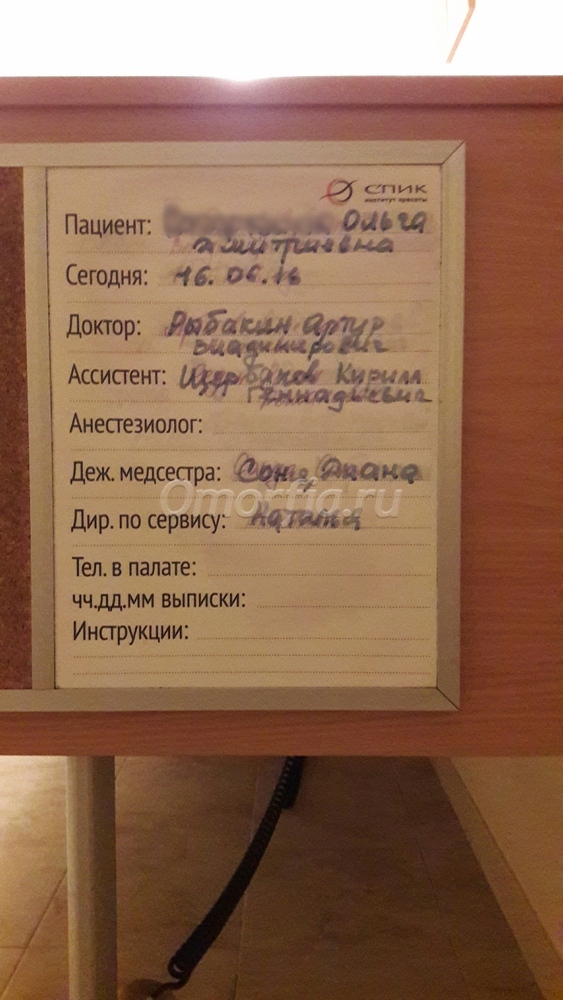 СПИК
институт красоты
Пациент: Ольга
Дмитриевна
Сегодня: 16.06.16
Доктор: Рыбакин Артур
Владимирович
Ассистент: Щербаков Кирилл
Геннадьевич
Анестезиолог:
Деж. медсестра: Соня, Диана
Omorfia.ru
Дир. по сервису: Наталья
Тел. в палате:
чч.дд.мм выписки:
Инструкции: